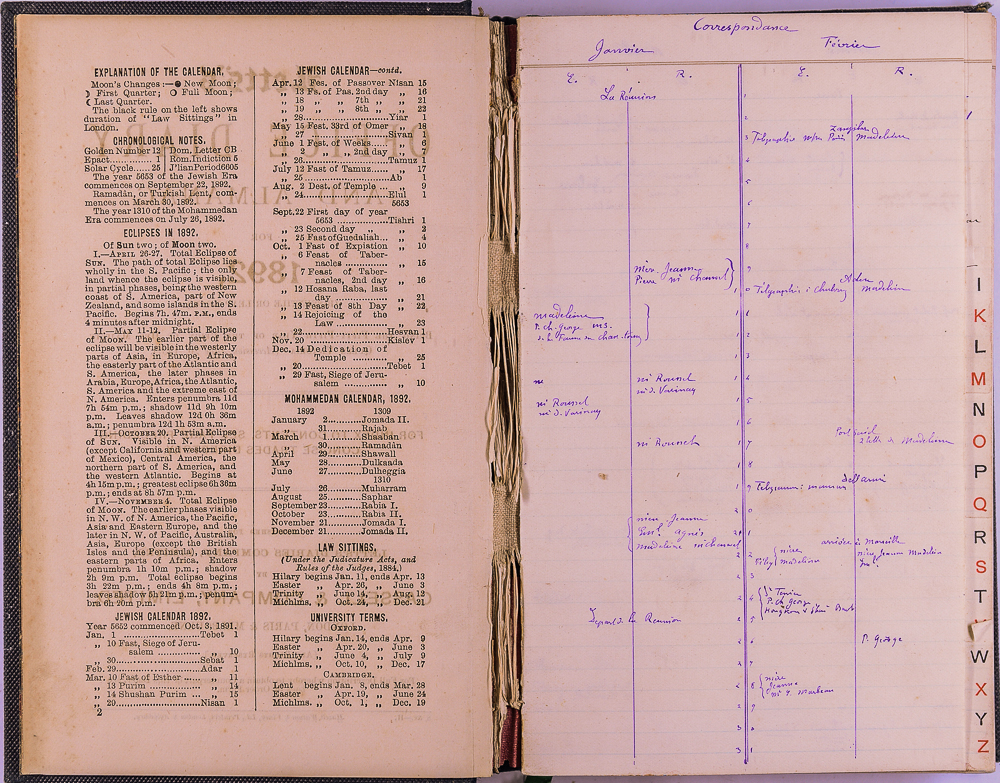 EXPLANATION OF THE CALENDAR.
Moon's Changes:—● New Moon;
☽ First Quarter; O Full Moon;
☾ Last Quarter.
The black rule on the left shows
duration of "Law Sittings" in
London.
CHRONOLOGICAL NOTES.
Golden Number 12 | Dom. Letter CB
Epact............ 1 | Rom. Indiction 5
Solar Cycle..... 25 | J'lianPeriod6605
The year 5653 of the Jewish Era
commences on September 22, 1892.
Ramadân, or Turkish Lent, com-
mences on March 30, 1892.
The year 1310 of the Mohammedan
Era commences on July 26, 1892.
ECLIPSES IN 1892.
Of Sun two; of Moon two.
I.—APRIL 26-27. Total Eclipse of
SUN. The path of total Eclipse lies
wholly in the S. Pacific; the only
land whence the eclipse is visible,
in partial phases, being the western
coast of S. America, part of New
Zealand, and some islands in the S.
Pacific. Begins 7h. 47m. P.M., ends
4 minutes after midnight.
II.—MAY 11-12. Partial Eclipse
of MOON. The earlier part of the
eclipse will be visible in the westerly
parts of Asia, in Europe, Africa,
the easterly part of the Atlantic and
S. America, the later phases in
Arabia, Europe, Africa, the Atlantic,
S. America and the extreme east of
N. America. Enters penumbra 11d
7h 54m p.m.; shadow 11d 9h 10m
p.m. Leaves shadow 12d 0h 36m
a.m.; penumbra 12d 1h 53m a.m.
III.—OCTOBER 20. Partial Eclipse
of SUN. Visible in N. America
(except California and western part
of Mexico), Central America, the
northern part of S. America, and
the western Atlantic. Begins at
4h 15m p.m.; greatest eclipse 6h36m
p.m.; ends at 8h 57m p.m.
IV.—NOVEMBER 4. Total Eclipse
of MOON. The earlier phases visible
in N. W. of N. America, the Pacific,
Asia and Eastern Europe, and the
later in N. W. of Pacific, Australia,
Asia, Europe (except the British
Isles and the Peninsula), and the
eastern parts of Africa. Enters
penumbra 1h 10m p.m.; shadow
2h 9m p.m. Total eclipse begins
3h 22m p.m.; ends 4h 8m p.m.;
leaves shadow 5h 21m p.m.; penum-
bra 6h 20m p.m.
JEWISH CALENDAR 1892.
Year 5652 commenced Oct. 3, 1891.
Jan. 1 ..................Tebet 1
„ 10 Fast, Siege of Jeru-
salem .................. „ 10
„ 30..................Sebat 1
Feb. 29..................Adar 1
Mar. 10 Fast of Esther ...... „ 11
„ 13 Purim .................. „ 14
„ 14 Shushan Purim ... „ 15
„ 29..................Nisan 1
2
JEWISH CALENDAR—contd.
Apr. 12 Fes. of Passover Nisan 15
„ 13 Fs. of Pas. 2nd day „ 16
„ 18 „ „ 7th „ „ 21
„ 19 „ „ 8th „ „ 22
„ 28..................Yiar 1
May 15 Fest. 33rd of Omer „ 18
„ 27 ..................Sivan 1
June 1 Fest. of Weeks...... „ 6
„ 2 „ „ 2nd day „ 7
„ 26..................Tamuz 1
July 12 Fast of Tamuz...... „ 17
„ 25 ..................Ab 1
Aug. 2 Dest. of Temple ... „ 9
„ 24..................Elul 1
5653
Sept. 22 First day of year
5653 ..................Tishri 1
„ 23 Second day „ „ 2
„ 25 Fast of Guedaliah... „ 4
Oct. 1 Fast of Expiation „ 10
„ 6 Feast of Taber-
nacles .................. „ 15
„ 7 Feast of Taber-
nacles, 2nd day „ 16
„ 12 Hosana Raba, last
day .................. „ 21
„ 13 Feast of 8th Day „ 22
„ 14 Rejoicing of the
Law .................. „ 23
„ 22..................Hesvan 1
Nov. 20..................Kislev 1
Dec. 14 Dedication of
Temple ............... „ 25
„ 20..................Tebet 1
„ 29 Fast, Siege of Jeru-
salem .................. „ 10
MOHAMMEDAN CALENDAR, 1892.
1892 1309
January 2............Jomada II.
„ 31............Rajab
March 1............Shaaban
„ 30............Ramadân
April 29............Shawall
May 28............Dulkaada
June 27............Dulheggia
1310
July 26............Muharram
August 25............Saphar
September 23............Rabia I.
October 23............Rabia II.
November 21............Jomada I.
December 21............Jomada II.
LAW SITTINGS.
(Under the Judicature Acts, and
Rules of the Judges, 1884.)
Hilary begins Jan. 11, ends Apr. 13
Easter „ Apr. 26, „ June 3
Trinity „ June 14, „ Aug. 12
Michlms. „ Oct. 24, „ Dec. 21
UNIVERSITY TERMS.
OXFORD.
Hilary begins Jan. 14, ends Apr. 9
Easter „ Apr. 20, „ June 3
Trinity „ June 4, „ July 9
Michlms. „ Oct. 10, „ Dec. 17
CAMBRIDGE.
Lent begins Jan. 8, ends Mar. 28
Easter „ Apr. 19, „ June 24
Michlms. „ Oct. 1, „ Dec. 19
Correspondance
Janvier Février
E. R. E. R.
La Réunion
Télégraphie Paris Madeleine
Jeanne
Pierre
Madeleine
madeleine
P. ch. george
Roussel
Roussel
Roussel
2 lettr de Madeleine
Jeanne
Agnès
Madeleine
arrivée à Marseille
Jeanne Madelein
madeleine
P. ch george
Depart de la Reunion
P. George
Jeanne
I
K
L
M
N
O
P
Q
R
S
T
W
X
Y
Z